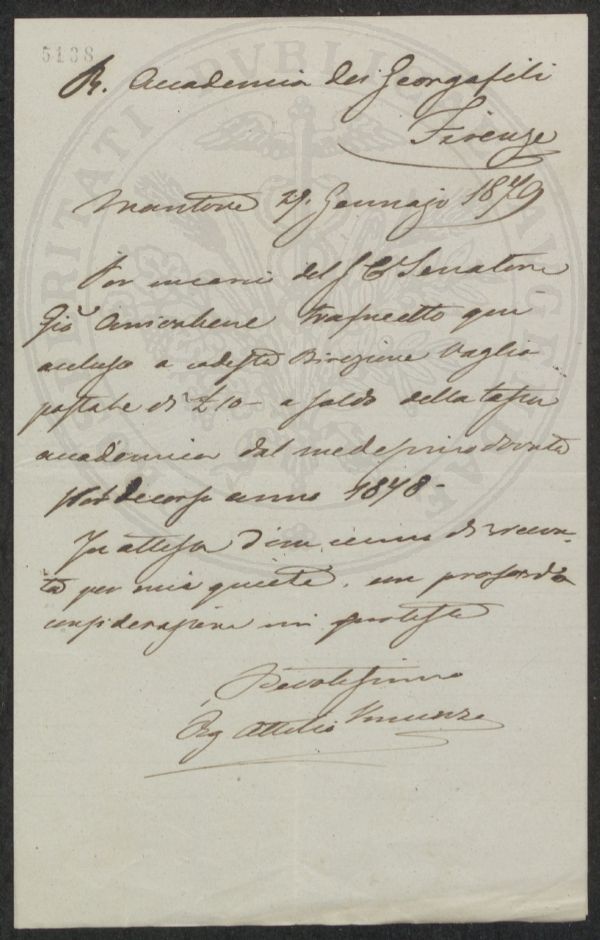 5138
R. Accademia dei Georgofili
Firenze
Mantova 29. Gennajo 1879
Per incarico del S. C. Senatore
Gio Arrivabene trasmetto qui
accluso a codesta Direzione Vaglia
postale di £ 10 - a saldo della tassa
accademica dal medesimo dovuta
decorso anno 1878 -
In attesa d'un cenno di ricevu-
ta per mia quiete, con profonda
considerazione mi protesto
Devotissimo
Rag Attilio